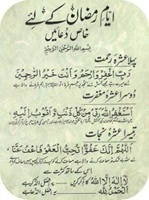 ایام رمضان کے لئے
خاص دعائیں
بسم اللہ الرحمن الرحیم
پہلا عشرہ رحمت
رَبِّ اغْفِرْ وَارْحَمْ وَاَنْتَ خَیْرُ الرَّاحِمِیْنَ
دوسرا عشرہ مغفرت
اَسْتَغْفِرُ اللّٰهَ رَبِّیْ مِنْ كُلِّ ذَنْبٍ وَّاَتُوْبُ اِلَیْهِ
تیسرا عشرہ نجات
اَللّٰهُمَّ اِنَّكَ عَفُوٌّ تُحِبُّ الْعَفْوَ فَاعْفُ عَنَّا
لَا اِلٰهَ اِلَّا اللّٰهُ